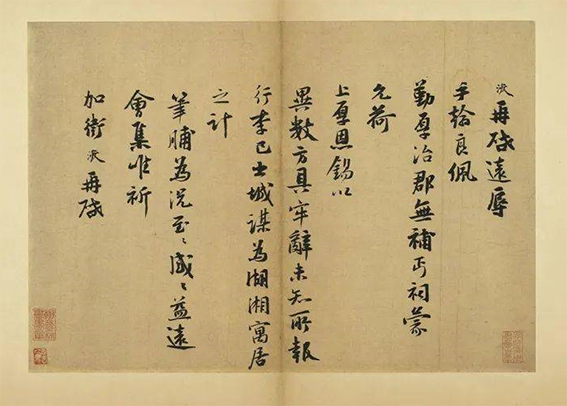 浚再啟遠辱
手翰良佩
勤厚治郡無補丐祠蒙
允荷
上厚恩錫以
異數方具牢辭未知所報
行李已出城謀為湖湘寓居
之計
筆脯為況至〻感〻益遠
會集惟祈
加衛浚再啟